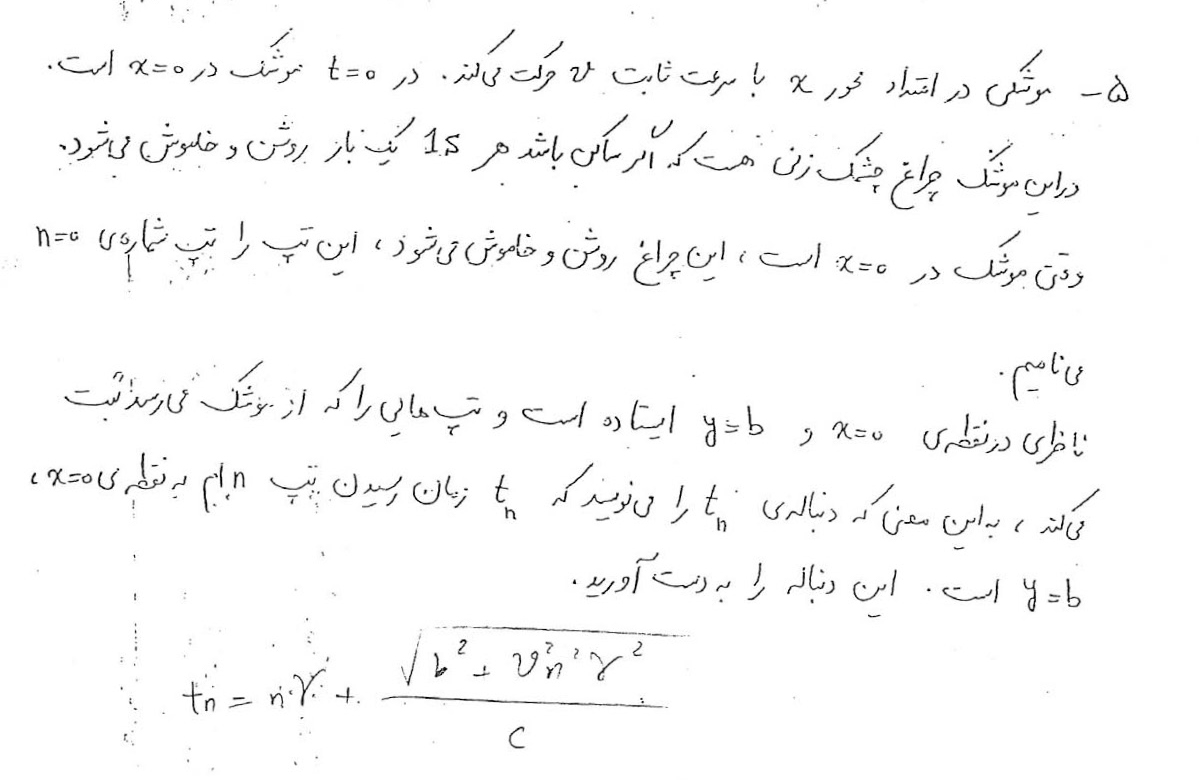 ۵- موشکی در امتداد محور x با سرعت ثابت v حرکت می‌کند. در t=0 موشک در x=0 است.
در این موشک چراغ چشمک زنی هست که اگر ساکن باشد هر 1s یک بار روشن و خاموش می‌شود.
وقتی موشک در x=0 است، این چراغ روشن و خاموش می‌شود، این تپ را تپ شماره‌ی n=0
می‌نامیم.
ناظری در نقطه‌ی x=0 و y=b ایستاده است و تپ‌هایی را که از موشک می‌رسد ثبت
می‌کند، به این معنی که دنباله‌ی tₙ را می‌نویسد که tₙ زمان رسیدن تپ nام به نقطه‌ی x=0،
y=b است. این دنباله را به دست آورید.
tₙ = nγ + √(b² + v²n²γ²) / c